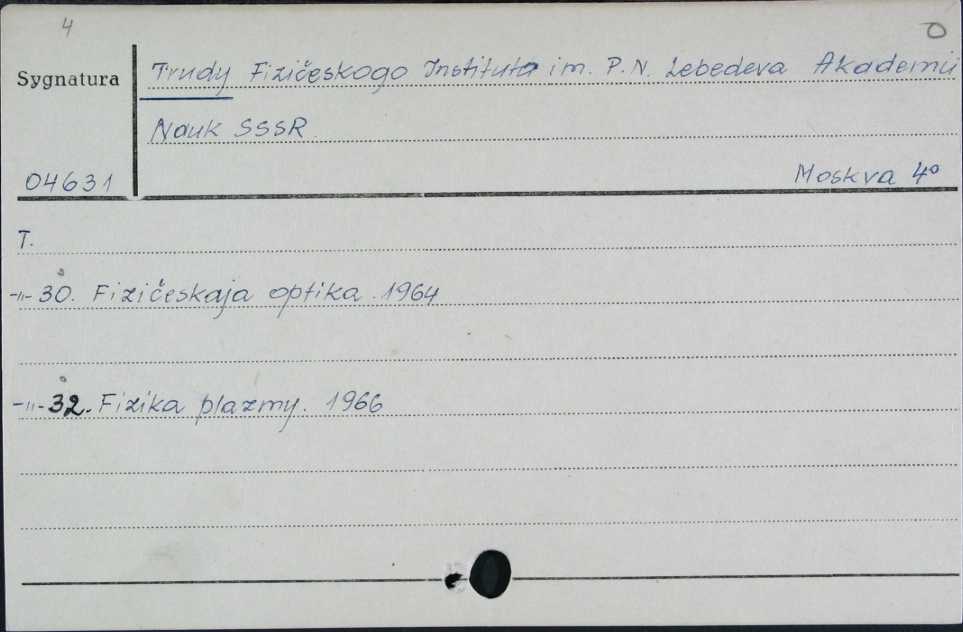 4
O
Sygnatura
Trudy Fizičeskogo Instituta im. P.N. Lebedeva Akademii
Nauk SSSR
04631
Moskva 4°
T.
-"- 30. Fizičeskaja optika. 1964
-"- 32. Fizika plazmy. 1966